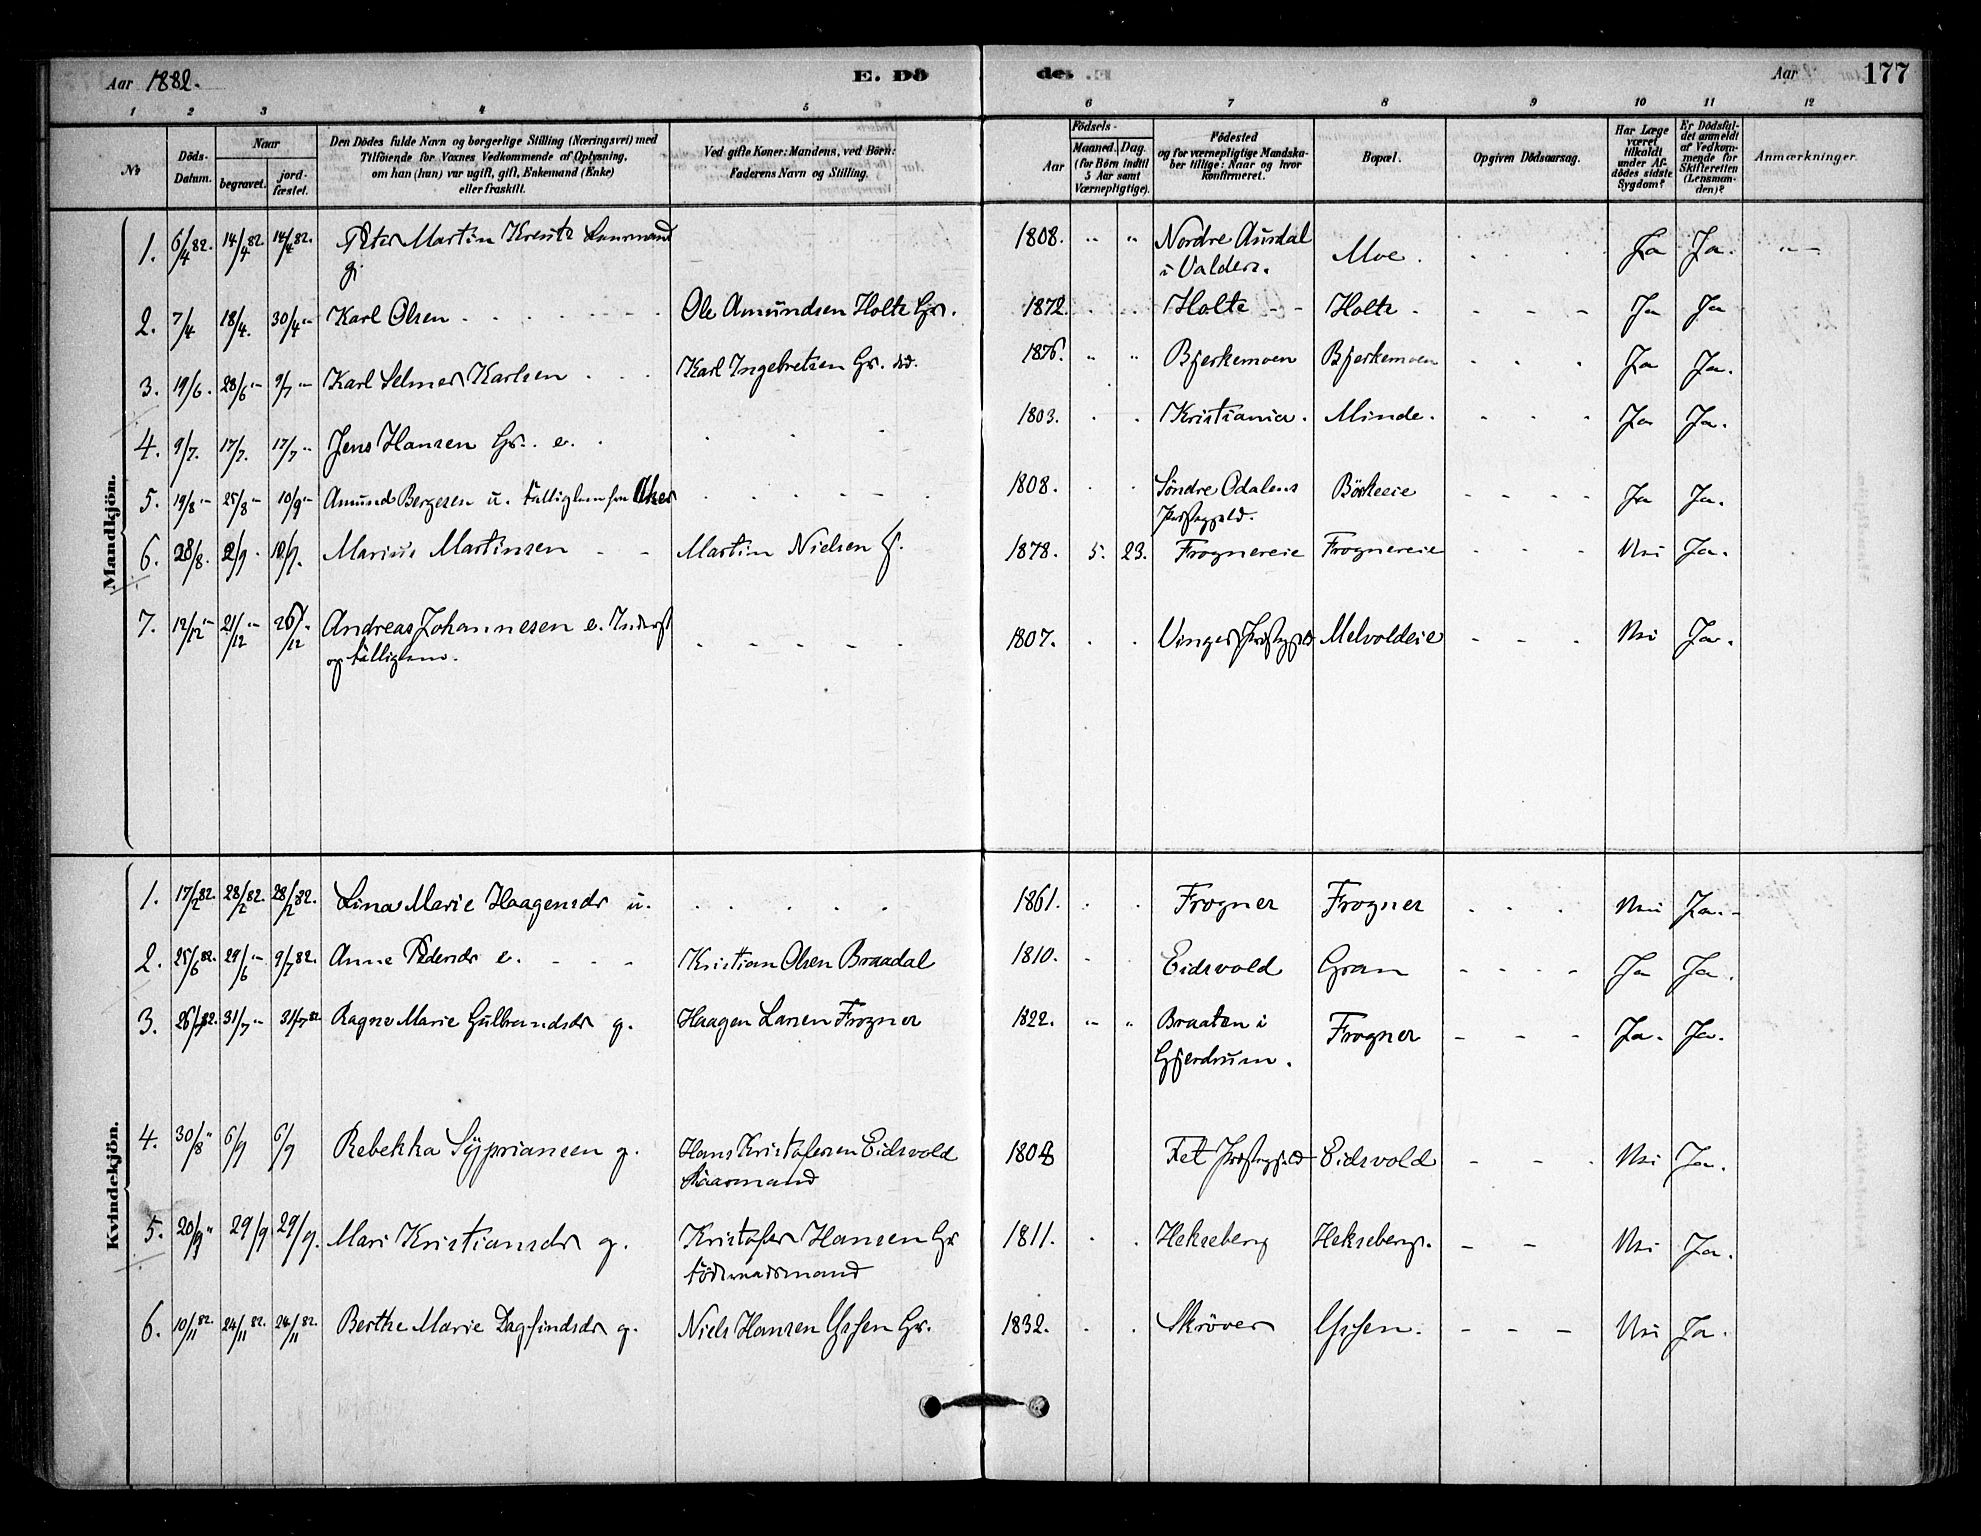 Aar 1882. E. Dö de. Aar 177
1 2 3 4 5 6 7 8 9 10 11 12
№ Döds-Datum. Naar begravet. jordfæstet. Den Dödes fulde Navn og borgerlige Stilling (Næringsvei) med Tilföiende for Voxnes Vedkommende af Oplysning, om han (hun) var ugift, gift, Enkemand (Enke) eller fraskilt. Ved gifte Koner: Mandens, ved Börn: Faderens Navn og Stilling. Födsels- Aar Maaned. Dag. (for Börn indtil 5 Aar samt Værnepligtige). Födested og for værnepligtige Mandskaber tillige: Naar og hvor konfirmeret. Bopæl. Opgiven Dödsaarsag. Har Læge været tilkaldt under Afdödes sidste Sygdom? Er Dödsfaldet anmeldt af Vedkommende for Skifteretten (Lensmanden)? Anmærkninger.
Mandkjön.
1. 6/4 82. 14/4 82. 14/4 82. Peter Martin 1808. " " Nordre Aurdal Moe. Ja Ja. "–
g. i Valders.
2. 7/4 18/4. 30/4 " Karl Olsen Ole Amundsen Holte Gr. 1872. Holte Holte Ja Ja
3. 19/6. 28/6 " 9/7 " Karl Selmer Karlsen Karl Ingebretsen Gr. 1876. " " Bjerkemoen Bjerkemoen Ja Ja.
4. 9/7. 17/7. 17/7 " Jens Hansen Gr. e. 1803. Kristiania. Minde. Ja Ja.
5. 19/8 " 25/8 " 10/9 " Amund Bergesen u. Fattiglem fra Aker 1808. Söndre Odalens Börkeeie Ja Ja.
Præstegjeld.
6. 28/8. 2/9. 10/9. Marius Martinsen Martin Nielsen 1878. 5. 23. Frognereie Frognereie Nei Ja.
7. 12/12 " 21/12 " 26/12 Andreas Johannesen e. Inderst 1807. Vinger Præstegjeld Melvoldeie Nei Ja.
og Fattiglem.
Kvindekjön.
1. 17/2 82. 28/2 82. 28/2 82. Lina Marie Haagensdr u. 1861. Frogner Frogner Nei Ja.
2. 25/6 82. 29/6 " 9/7 82. Anne Pedersdr e. Kristian Olsen Braadal 1810. Eidsvold Gran Ja Ja.
3. 26/7 82. 31/7 " 31/7 82 Ragne Marie Gulbrandsdr g. Haagen Larsen Frogner 1822. " " Braaten i Frogner Ja. Ja.
Gjerdrum.
4. 30/8 " 6/9 6/9 Rebekka Sypriansen g. Hans Kristofersen Eidsvold 1808 Fet Præstegjeld Eidsvold Nei Ja.
5. 20/9 " 29/9 29/9. Mari Kristiansdr g. Kristofer Hansen Gr 1811. Hekseberg Hekseberg. Nei Ja.
Föderaadsmand
6. 10/11 82. 24/11 82. 24/11 82. Berthe Marie Dagfindsdr g. Niels Hansen Gr. 1832. Skröver Nei Ja.